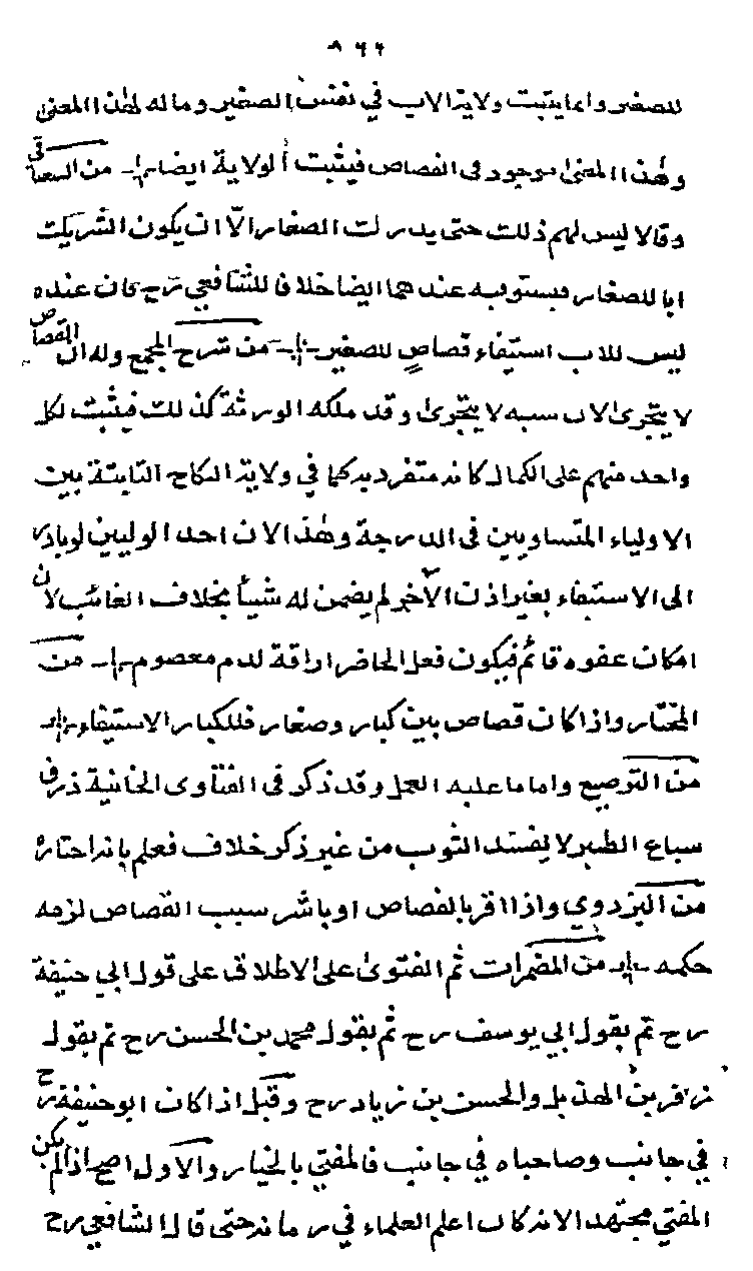 ٨٦٦
للصغير وانما يثبت ولاية الاب في نفس الصغير وماله لهذا المعنى
وهذا المعنى موجود في القصاص فيثبت الولاية ايضا من
وقالا ليس لهم ذلك حتى يدرك الصغار الّا ان يكون الشريك
ابا للصغار فيستوفيه عندهما ايضا خلافا للشافعي رح فان عنده
ليس للاب استيفاء قصاصٍ للصغير من شرح المجمع وله ان القصاص
لا يتجرى لان سببه لا يتجرى وقد ملكه الورثة كذلك فيثبت لكل
واحد منهم على الكمال كانه متفرد به كما في ولاية النكاح الثابتة بين
الاولياء المتساويين في الدرجة وهذا لان احد الوليين لو بادر
الى الاستيفاء بغير اذن الآخر لم يضمن له شيأ بخلاف الغائب لان
امكان عفوه قائم فيكون فعل الحاضر اراقة لدم معصوم من
المختار واذا كان قصاص بين كبار وصغار فللكبار الاستيفاء
من التوصيع واما ما عليه العمل وقد ذكر في الفتاوى الخانية ذرق
سباع الطير لا يفسد الثوب من غير ذكر خلاف فعلم بانه اختاره
من البزدوي واذا اقر بالقصاص او باشر سبب القصاص لزمه
حكمه من المضمرات ثم الفتوى على الاطلاق على قول ابي حنيفة
رح ثم بقول ابي يوسف رح ثم بقول محمد بن الحسن رح ثم بقول
زفر بن الهذيل والحسن بن زياد رح وقيل اذا كان ابو حنيفة رح
في جانب وصاحباه في جانب فالمفتي بالخيار والاول اصح اذا لم يكن
المفتي مجتهدا لانه كان اعلم العلماء في زمانه حتى قال الشافعي رح